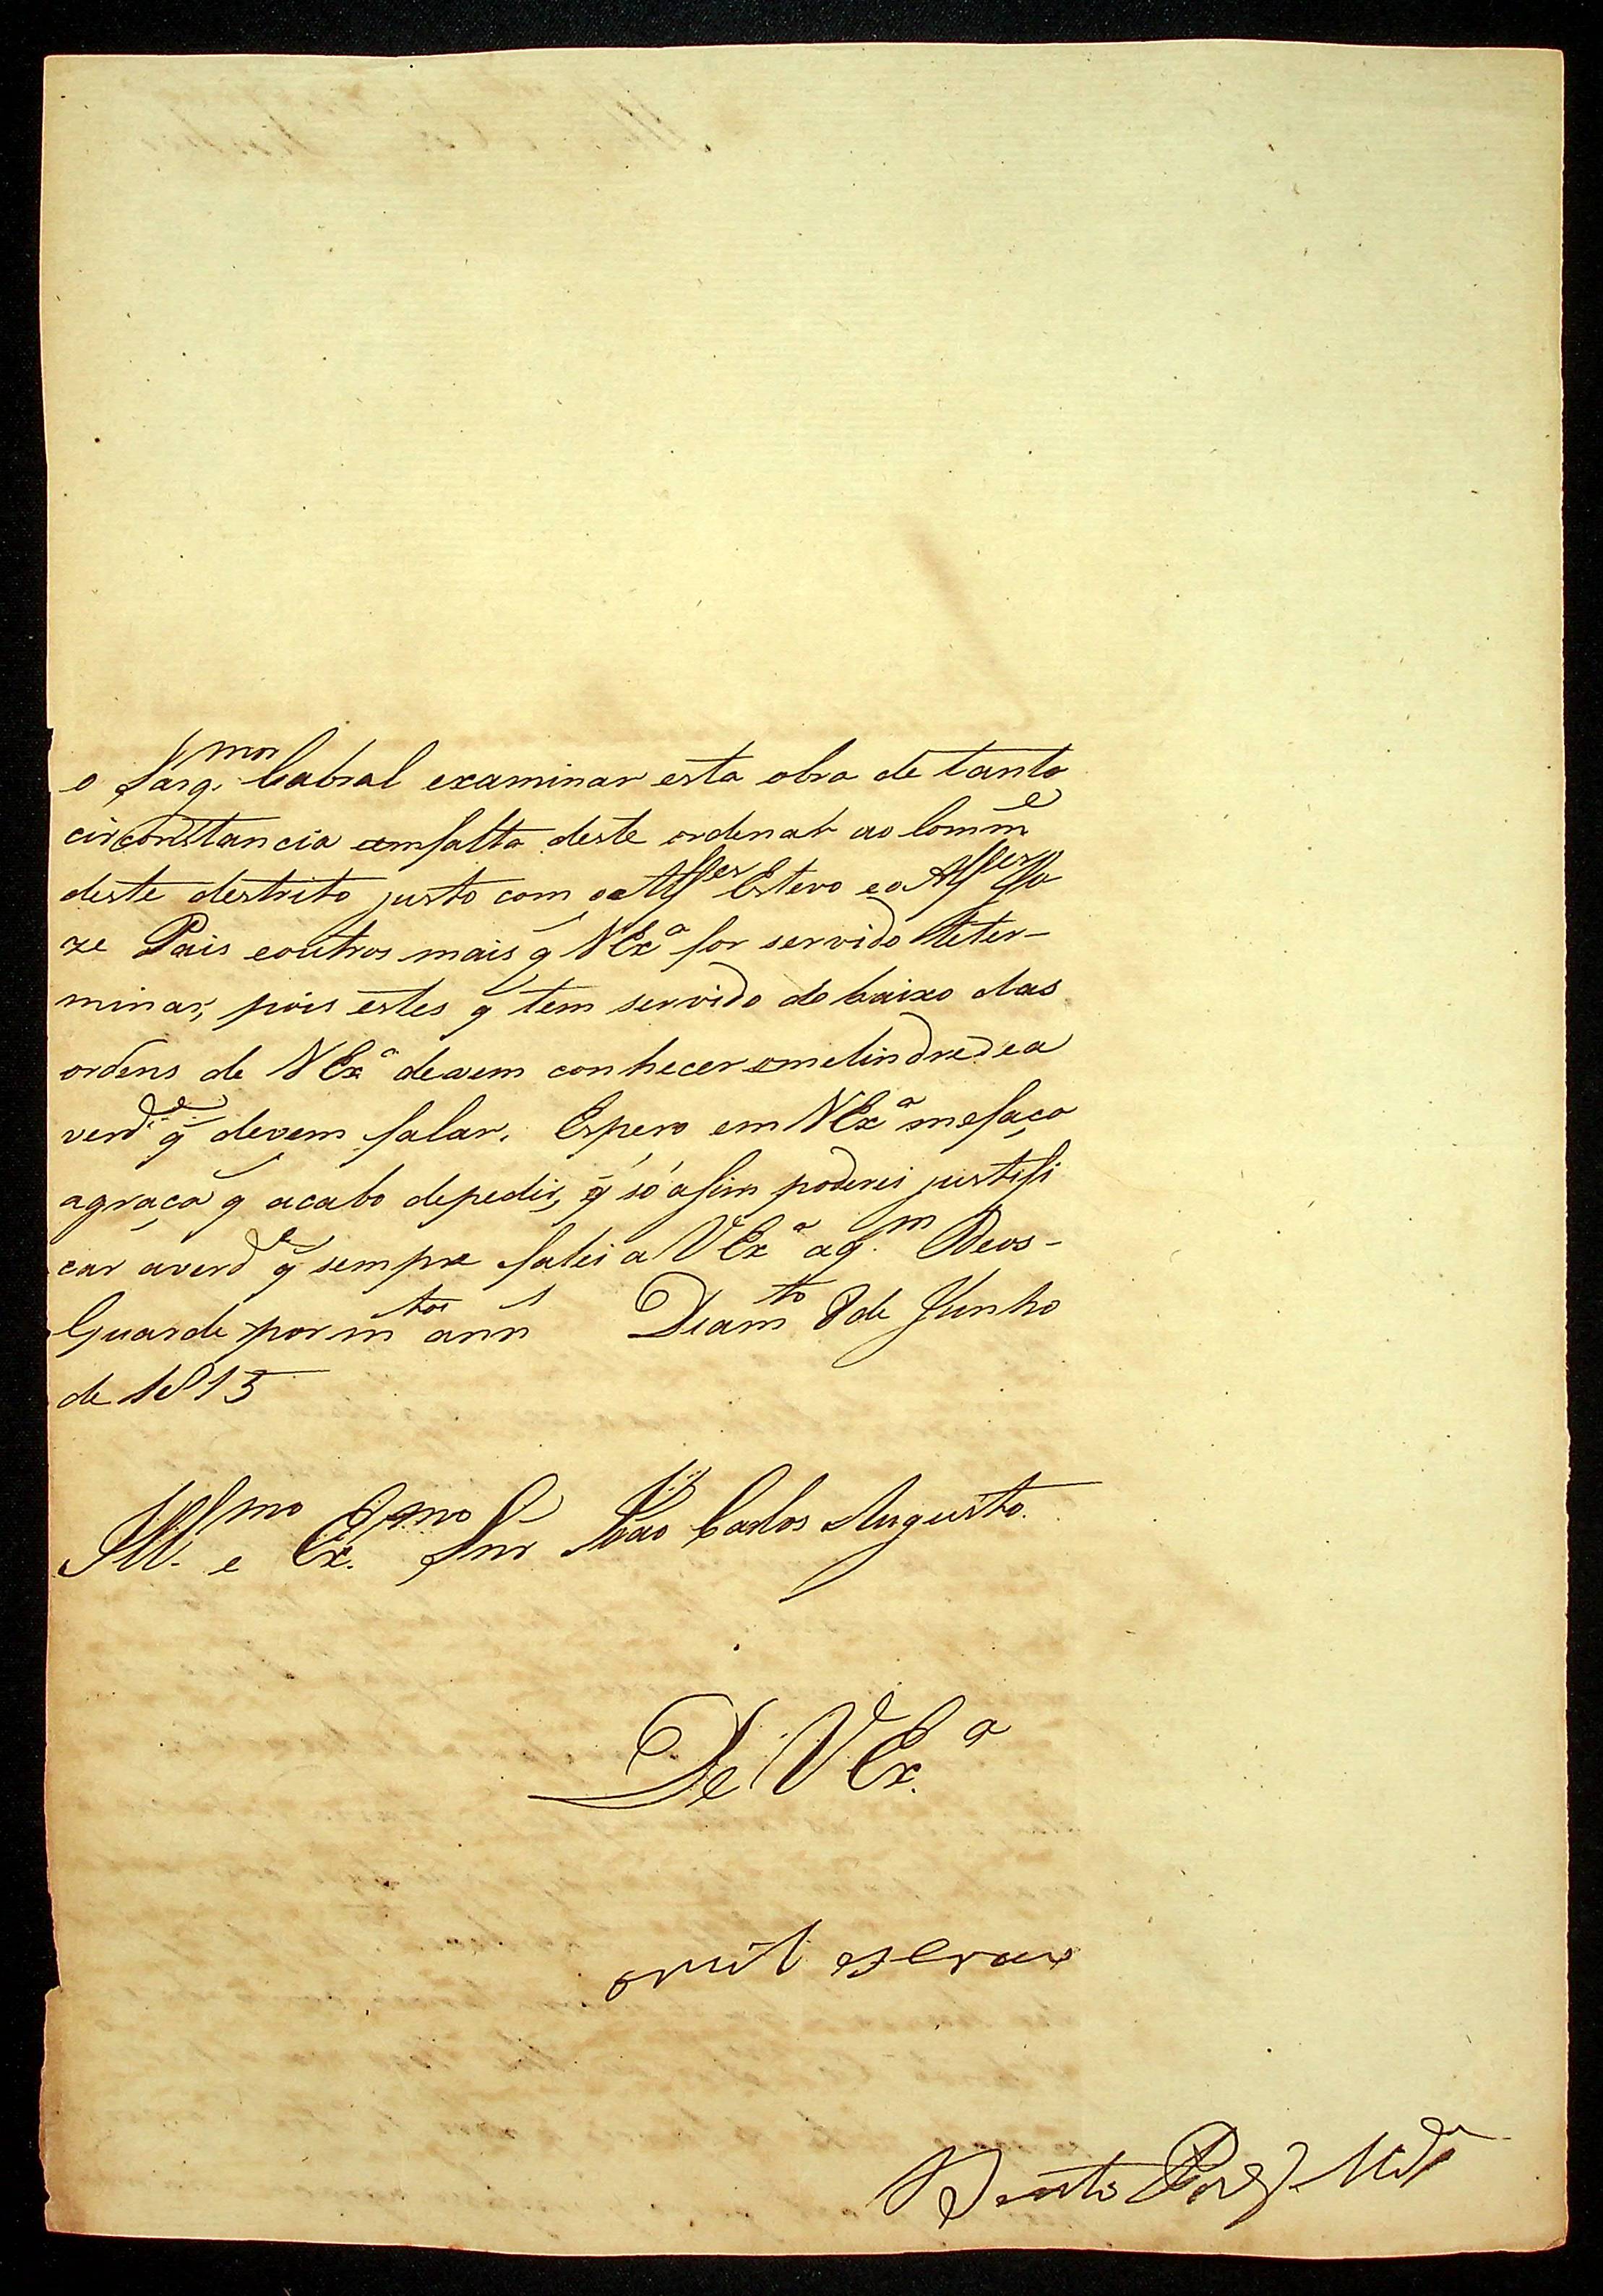 o Sarg.mor Cabral examinar esta obra de tanta
circonstancia emfalta deste ordenar ao Comm.e
deste destrito justo com o Alfes Estevo eo Alfes
ze Pais eoutros mais q VExª for servido deter-
minar, pois estes q tem servido de baixo das
ordens de VExª devem conhecer omelindre dea
verd.e q̃ devem falar. Espero em VExª mefaça
agraça q acabo depedir, q̃ só asim poderei justifi
car averd.e q̃ sempre falei a VExª aq.m Deos-
Guarde por m.tos ann.s Diam.to 8 de Junho
de 1815
Ill.mo e Ex.mo Snr João Carlos Augusto.
De VEx.ª
Bento